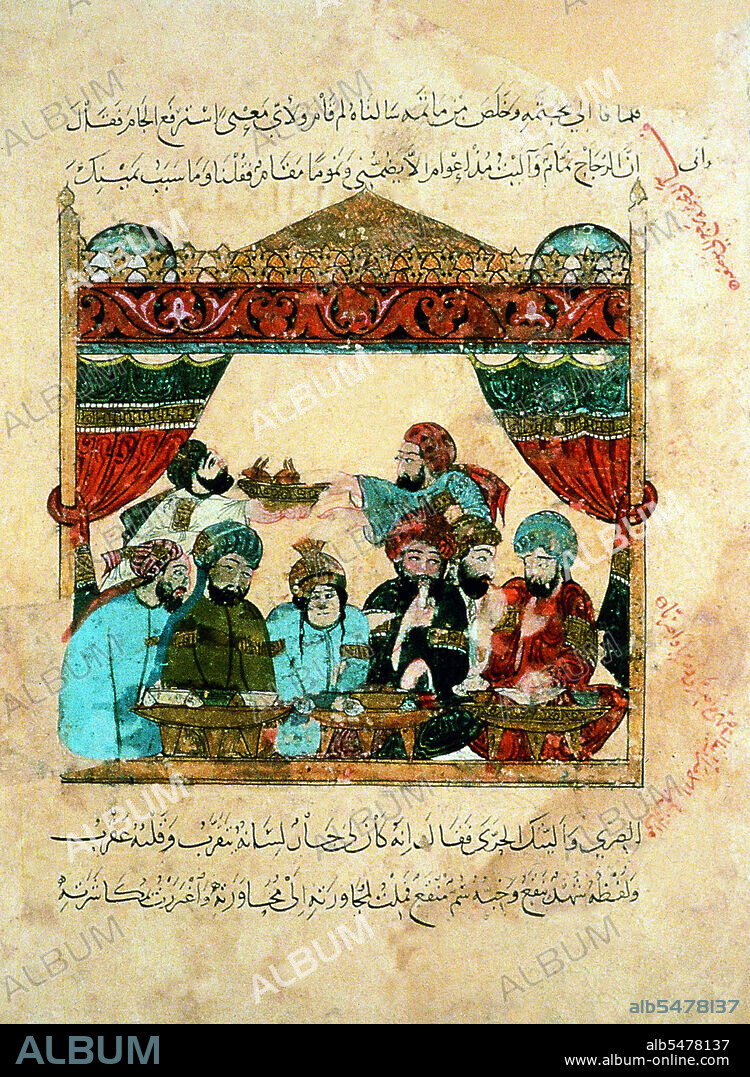 فلما فا الي مجثمه وخلص من ماثمه سالناه لم قام ولاي معنى استرفع الجام فقال
ان الزجاج نمام وآليت مذ اعوام الا يضمني ونموما مقام فقلنا وما سبب يمينك
الصري واليتك الحرى فقال انه كان لي جار لسانه يتقرب وقلبه عقرب
ولفظه شهد ينقع وخبئه سم منقع فملت لمجاورته الى محاورته واغررت بمكاشرته
ALBUM
alb5478137
ALBUM
alb5478137
www.album-online.com